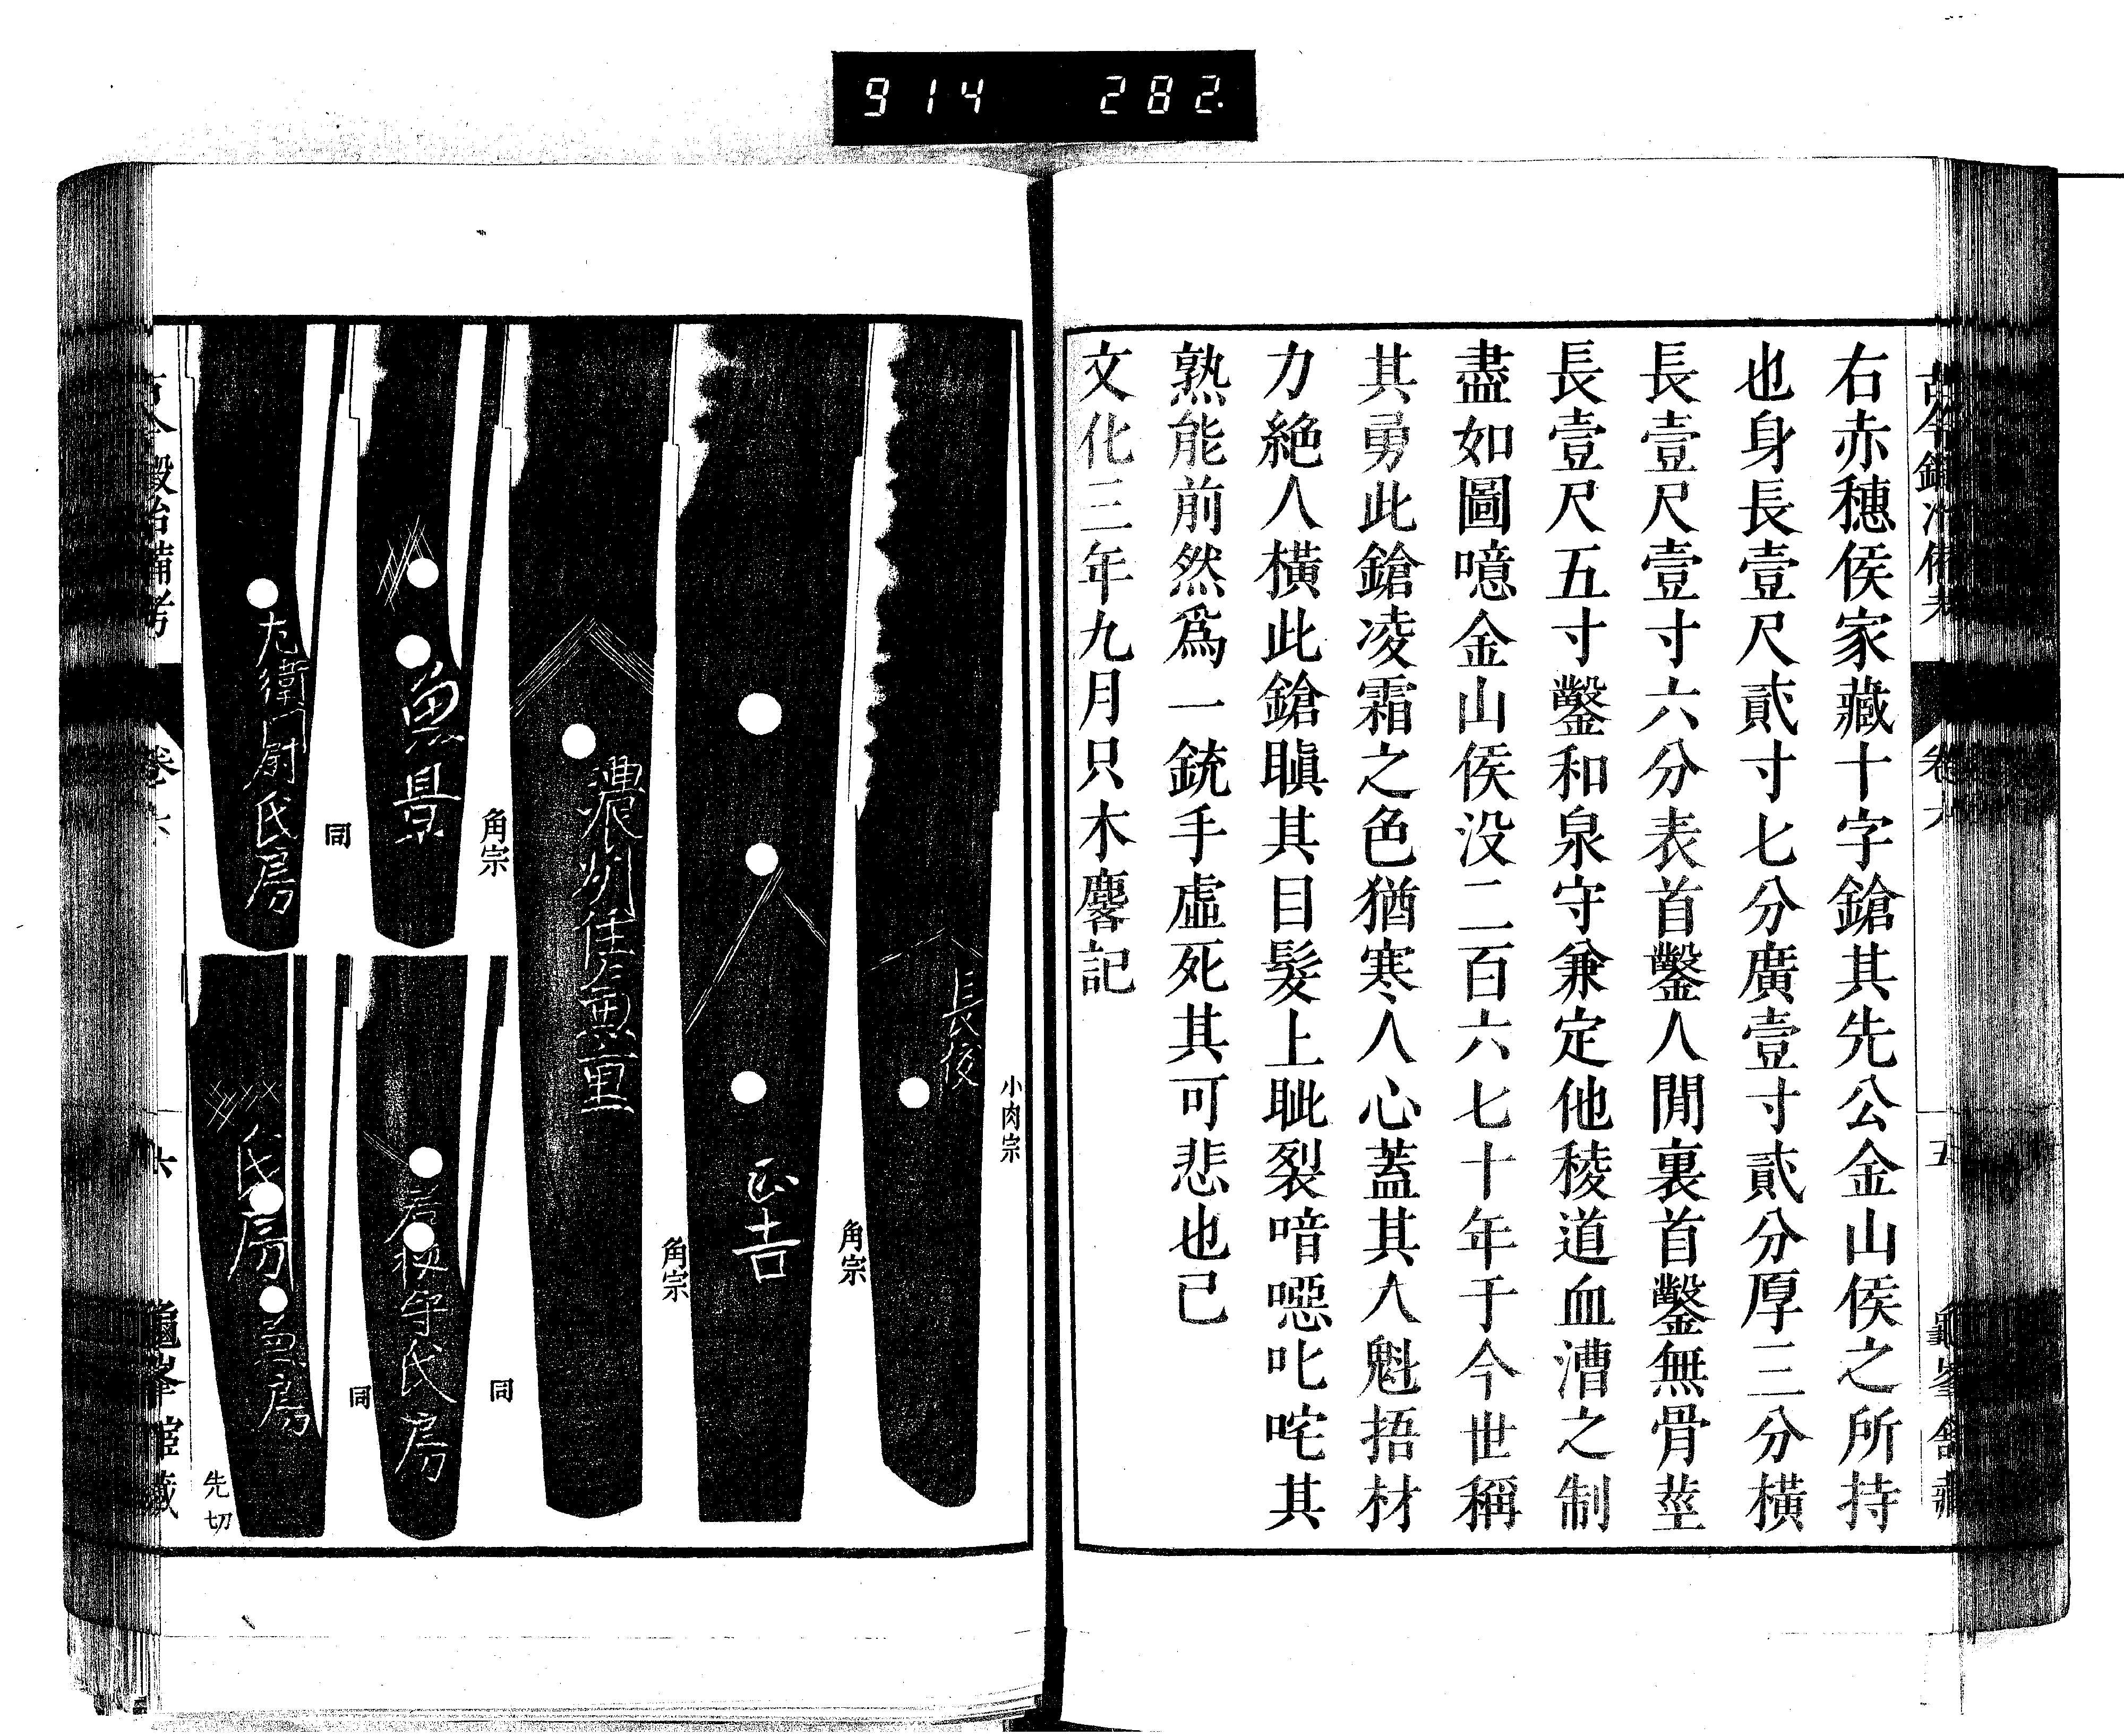 914 282.
古今鍛冶備考 卷六 十五 龜峯館藏
右赤穗侯家藏十字鎗其先公金山侯之所持
也身長壹尺貳寸七分廣壹寸貳分厚三分橫
長壹尺壹寸六分表首鑿人閒裏首鑿無骨莖
長壹尺五寸鑿和泉守兼定他稜道血漕之制
盡如圖噫金山侯没二百六七十年于今世稱
其勇此鎗凌霜之色猶寒人心蓋其人魁捂材
力絶人橫此鎗瞋其目髮上眦裂喑噁叱咤其
熟能前然爲一銃手虛死其可悲也已
文化三年九月只木麐記
小肉宗
長俊
角宗
正吉
角宗
濃州住兼重
角宗
兼景
同
左衛門尉氏房
同
若狹守氏房
同
氏房
兼房
先切
古今鍛冶備考 卷六 十六 龜峯館藏